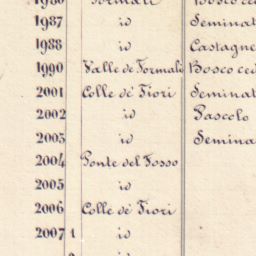 1987 id Seminat
1988 id Castagne
1990 Valle de Formali Bosco ced
2001 Colle de' Fiori Seminat
2002 id Pascolo
2003 id Semina
2004 Ponte del Fosso
2005 id
2006 Colle de' Fiori
2007 1 id